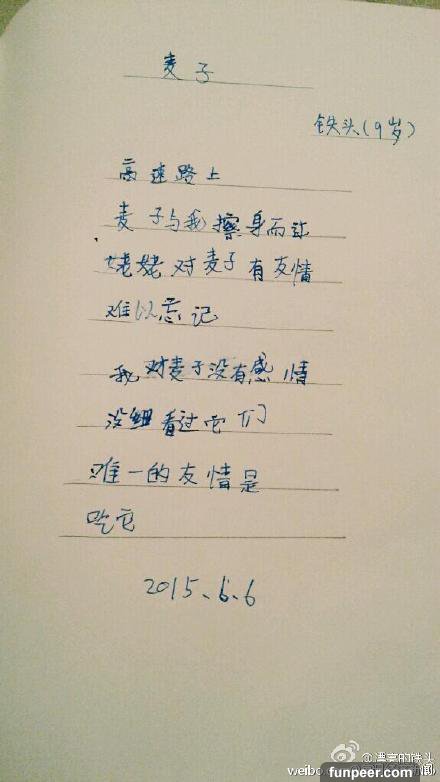 麦子
铁头(9岁)
高速路上
麦子与我擦身而过
姥姥对麦子有友情
难以忘记
我对麦子没有感情
没细看过它们
唯一的友情是
吃它
2015.6.6
@漂亮的铁头
weibo.com/
funpeer.com